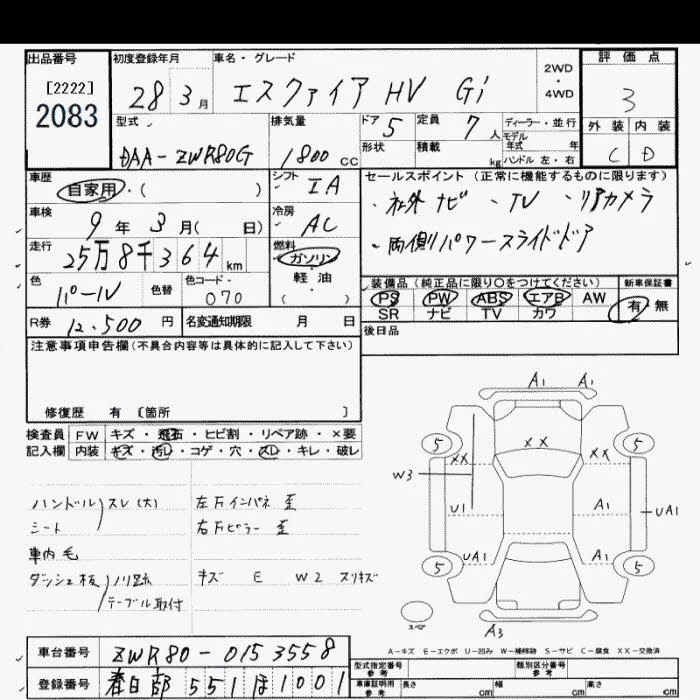 出品番号
[2222]
2083
初度登録年月
28 3月
車名・グレード
エスクァイア HV Gi
2WD
・
4WD
評価点
3
外装 内装
C D
型式
DAA-ZWR80G
排気量
1800 CC
ドア 5
形状
定員 7 人
積載 kg
ディーラー・並行
モデル
年式 年
ハンドル 左・右
車歴
自家用・( )
シフト
IA
車検
9年3月( 日)
冷房
AC
走行
25万8千364 km
燃料
ガソリン
軽・油
( )
色
パール
色替
色コード
070
R券 12,500円
名変通知期限 月 日
セールスポイント(正常に機能するものに限ります)
・社外ナビ ・TV ・リアカメラ
・両側パワースライドドア
装備品(純正品に限り○をつけてください)
PS PW ABS エアB AW
SR ナビ TV カワ
新車保証書
有 無
後日品
注意事項申告欄(不具合内容等は具体的に記入して下さい)
修復歴 有 [箇所 ]
検査員 FW キズ・飛石・ヒビ割・リペア跡・×要
記入欄 内装 キズ・汚レ・コゲ・穴・スレ・キレ・破レ
ハンドル スレ(大)
シート
車内毛
ダッシュ板 ノリ跡
テーブル取付
左Fインパネ歪
右Fピラー歪
キズ E W2 スリキズ
A1 A1
5 5
XX XX XX
W3
U1 A1 UA1
UA1 A1
5 5
スペア
A3
A-キズ E-エクボ U-凹み W-補修跡 S-サビ C-腐食 XX-交換済
車台番号 ZWR80-0153558
登録番号 春日部 551 ほ 1001
型式指定番号
参考
類別区分番号
参考
車庫証明用
参考
長さ cm
幅 cm
高さ cm